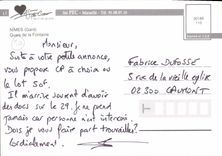 NIMES (Gard)
Quais de la Fontaine
Monsieur,
Suite à votre petite annonce,
vous propose CP à choix ou
le lot 50F.
Il m'arrive souvent d'avoir
des docs sur le 29. Je ne prend
jamais car personne n'est intéressé.
Dois-je vous faire part trouvailles?
Cordialement
Fabrice DUFOSSE
5 rue de la vieille église
02300 CAUMONT